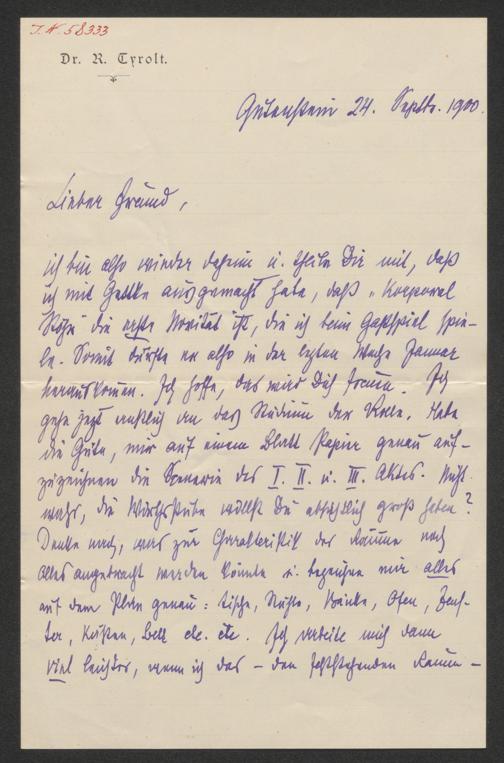 J.N. 58333
Dr. R. Tyrolt.
Gutenstein 24. Septbr. 1900.
Lieber Freund,
ich bin also wieder daheim u. theile Dir mit, daß
ich mit Gettke ausgemacht habe, daß „Korporal
die erste Novität ist, die ich beim Gastspiel spie-
le. Somit dürfte er also in der lezten Woche Januar
herauskommen. Ich hoffe, das wird Dich freuen. Ich
gehe jezt ernstlich an das Studium der Rolle. Habe
die Güte, mir auf einem Blatt Papier genau auf-
zuzeichnen die Scenerie des I. II. u. III. Aktes. Nicht
wahr, die Wirthsstube willst Du absichtlich groß haben?
Denke nach, was zur Charakteristik der Räume noch
alles angebracht werden könnte u. bezeichne mir alles
auf dem Plan genau: Tische, Stühle, Bänke, Ofen, Fens-
ter, Kasten, Bett etc. etc. Ich arbeite mich dann
viel leichter, wenn ich das – den feststehenden Raum –